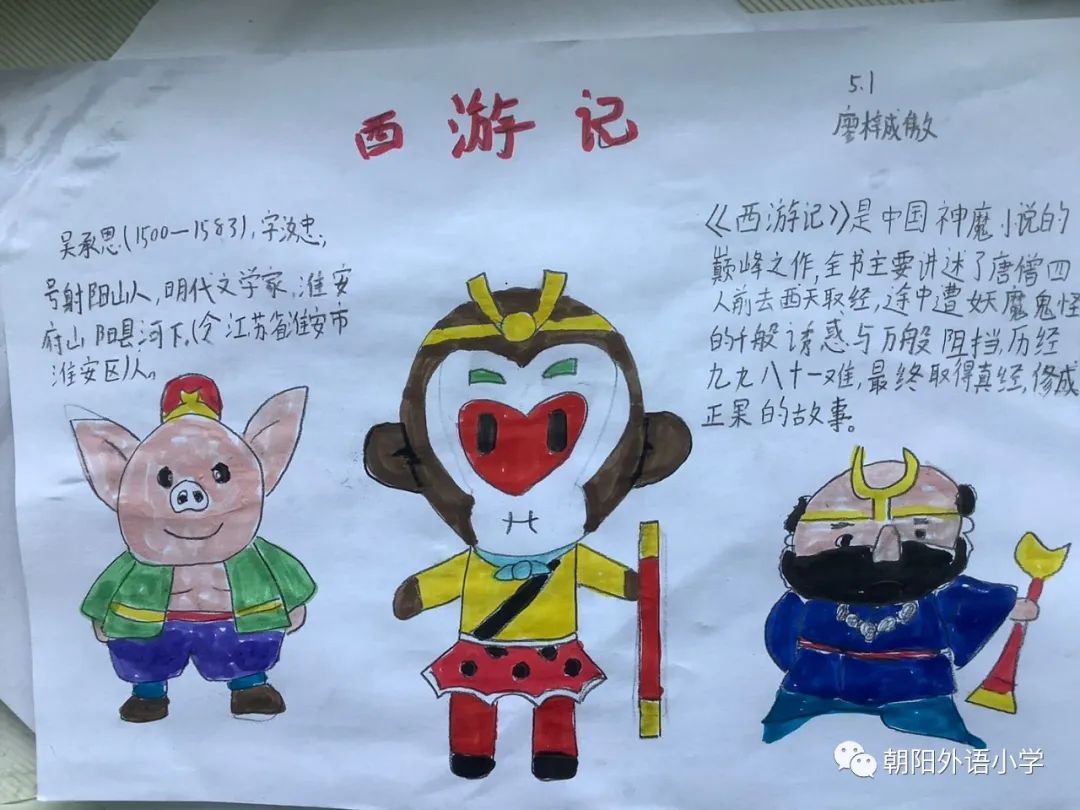 西游记
5.1
廖梓成傲
吴承恩(1500—1583),字汝忠,
号射阳山人,明代文学家,淮安
府山阳县河下,(今江苏省淮安市
淮安区)人。
《西游记》是中国神魔小说的
巅峰之作,全书主要讲述了唐僧四
人前去西天取经,途中遭妖魔鬼怪
的千般诱惑与万般阻挡,历经
九九八十一难,最终取得真经,修成
正果的故事。
朝阳外语小学